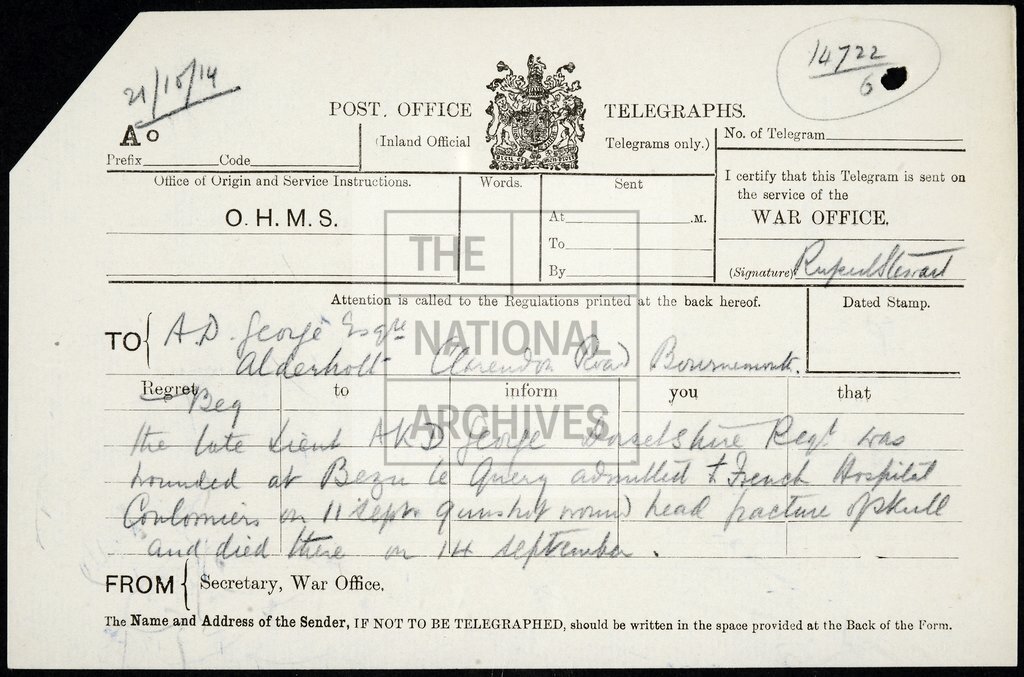 21/10/14
14722
6
POST OFFICE TELEGRAPHS.
A o
(Inland Official Telegrams only.)
No. of Telegram
Prefix Code
Office of Origin and Service Instructions.
Words.
Sent
I certify that this Telegram is sent on
the service of the
WAR OFFICE,
O.H.M.S.
At .M.
To
By
(Signature) Rupert Stewart
Attention is called to the Regulations printed at the back hereof.
Dated Stamp.
TO A.D. George Esqre
Alderholt Clarendon Road Bournemouth.
Regret to inform you that
Beg
the late Lieut AKD George Dorsetshire Regt was
wounded at Bezu le Query admitted to French Hospital
Coulomiers on 11 Septr gunshot wound head fracture of skull
and died there on 14 September.
FROM Secretary, War Office,
The Name and Address of the Sender, IF NOT TO BE TELEGRAPHED, should be written in the space provided at the Back of the Form.
THE
NATIONAL
ARCHIVES